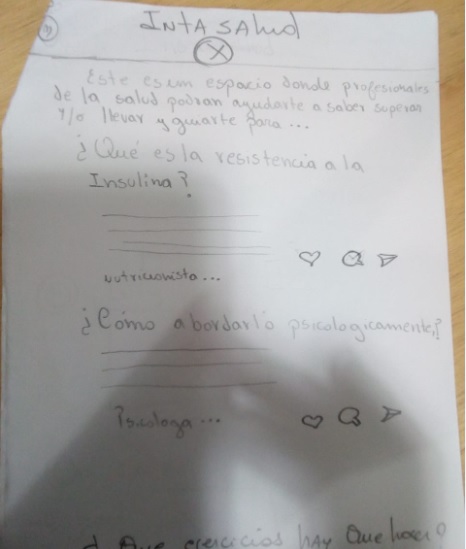 INTA SAlud
X
Este es un espacio donde profesionales
de la salud podran ayudarte a saber superar
Y/o llevar y guiarte para...
¿Qué es la resistencia a la
Insulina?
nutricionista...
¿Cómo abordarlo psicologicamente?
Psicologa...
¿Que ejercicios hAy Que hacer?